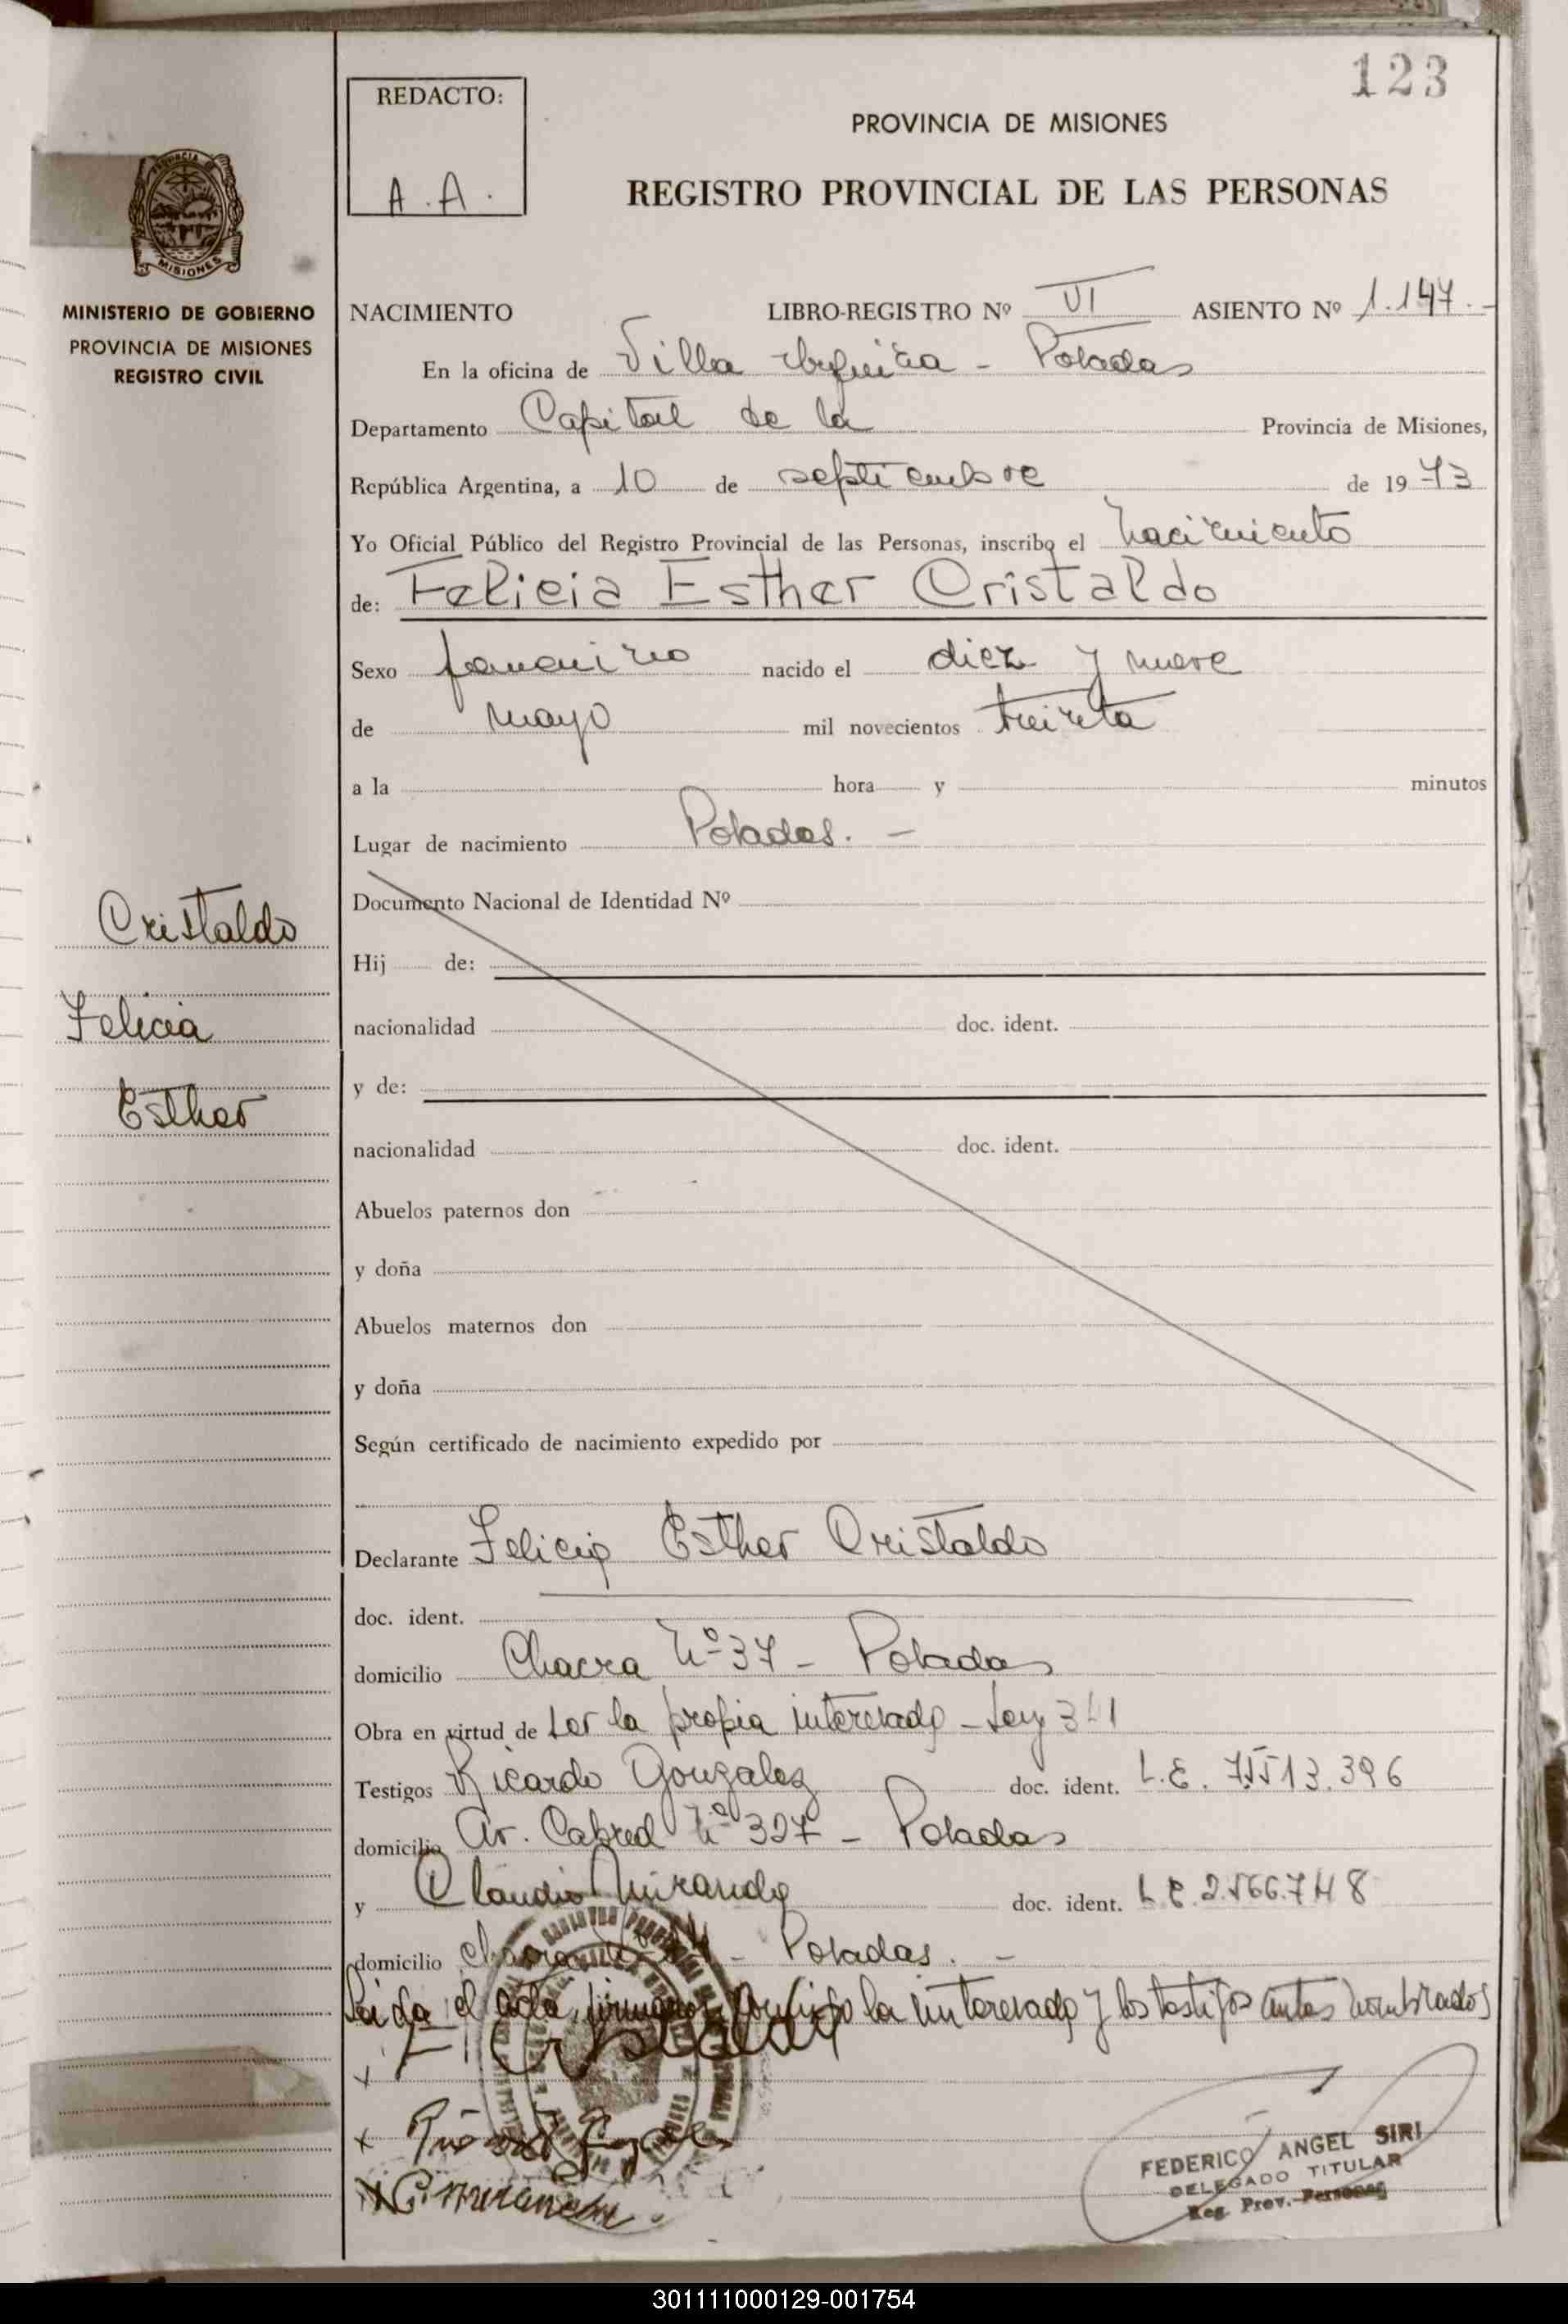 123
REDACTO:
A.A.
PROVINCIA DE MISIONES
REGISTRO PROVINCIAL DE LAS PERSONAS
PROVINCIA DE
MISIONES
MINISTERIO DE GOBIERNO
PROVINCIA DE MISIONES
REGISTRO CIVIL
NACIMIENTO LIBRO-REGISTRO Nº VI ASIENTO Nº 1.147.-
En la oficina de Villa Urquiza - Posadas
Departamento Capital de la Provincia de Misiones,
República Argentina, a 10 de septiembre de 1973
Yo Oficial Público del Registro Provincial de las Personas, inscribo el nacimiento
de: Felicia Esther Cristaldo
Sexo femenino nacido el diez y nueve
de mayo mil novecientos treinta
a la hora y minutos
Lugar de nacimiento Posadas. -
Documento Nacional de Identidad Nº
Cristaldo
Felicia
Esther
Hij de:
nacionalidad doc. ident.
y de:
nacionalidad doc. ident.
Abuelos paternos don
y doña
Abuelos maternos don
y doña
Según certificado de nacimiento expedido por
Declarante Felicia Esther Cristaldo
doc. ident.
domicilio Chacra Nº 37 - Posadas
Obra en virtud de ser la propia interesada - Ley 341
Testigos Ricardo Gonzalez doc. ident. L.E. 7.513.396
domicilio Av. Cabred Nº 327 - Posadas
y Claudio Miranda doc. ident. L.E. 2.566.748
domicilio Chacra - Posadas. -
Leida el acta, firman conmigo la interesada y los testigos antes nombrados
x F Cristaldo
x Ricardo Gonzales
x C. Miranda
FEDERICO ANGEL SIRI
DELEGADO TITULAR
Reg. Prov. Personas
301111000129-001754